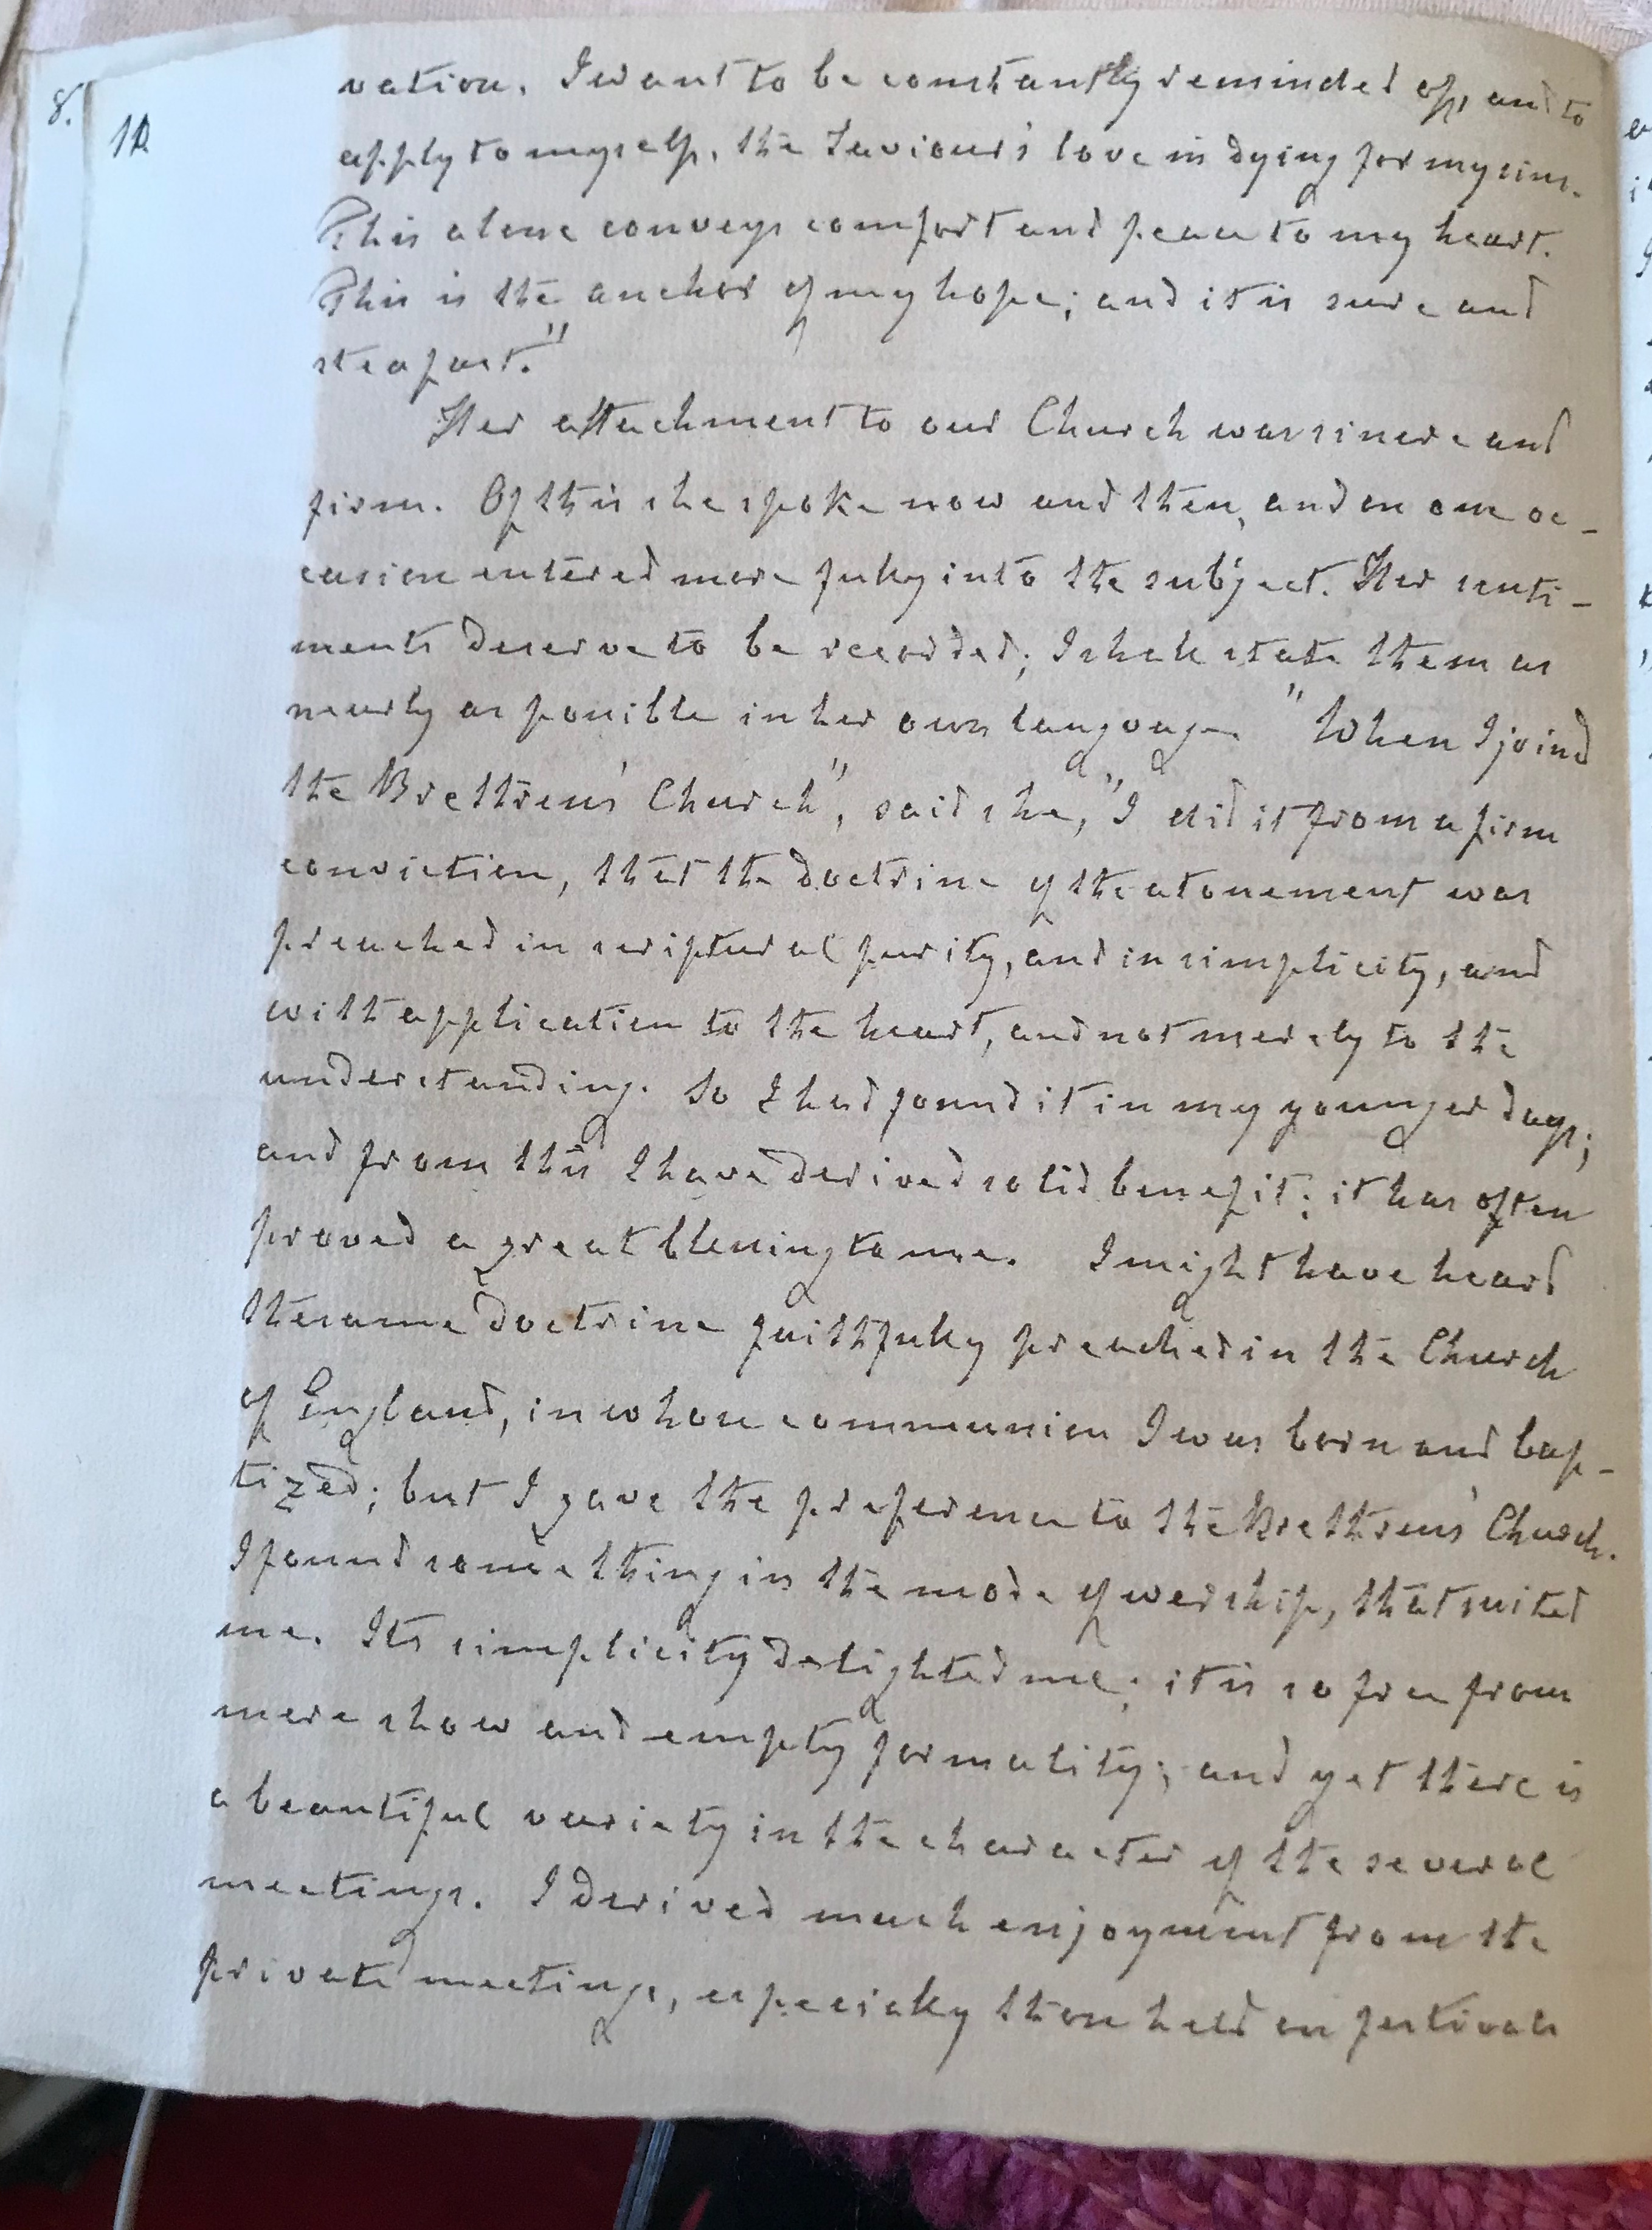 8.
10
vation. I want to be constantly reminded of, and to
apply to myself, the Saviour's love in dying for my sins.
This alone conveys comfort and peace to my heart.
This is the anchor of my hope; and it is sure and
steafast."
Her attachment to our Church was sincere and
firm. Of this she spoke now and then, and on one oc-
casion entered more fully into the subject. Her senti-
ments deserve to be recorded; I shall state them as
nearly as possible in her own language. "When I joind
the Brethren's Church", said she, "I did it from a firm
conviction, that the doctrine of the atonement was
preached in scriptural purity, and in simplicity, and
with application to the heart, and not merely to the
understanding. So I had found it in my younger days;
and from this I have derived solid benefit; it has often
proved a great blessing to me. I might have heard
the same doctrine faithfully preached in the Church
of England, in whose communion I was born and bap-
tized; but I gave the preference to the Brethren's Church.
I found something in the mode of worship, that suited
me. Its simplicity delighted me; it is so free from
mere show and empty formality; and yet there is
a beautiful variety in the character of the several
meetings. I derived much enjoyment from the
private meetings, especially those held on festivals